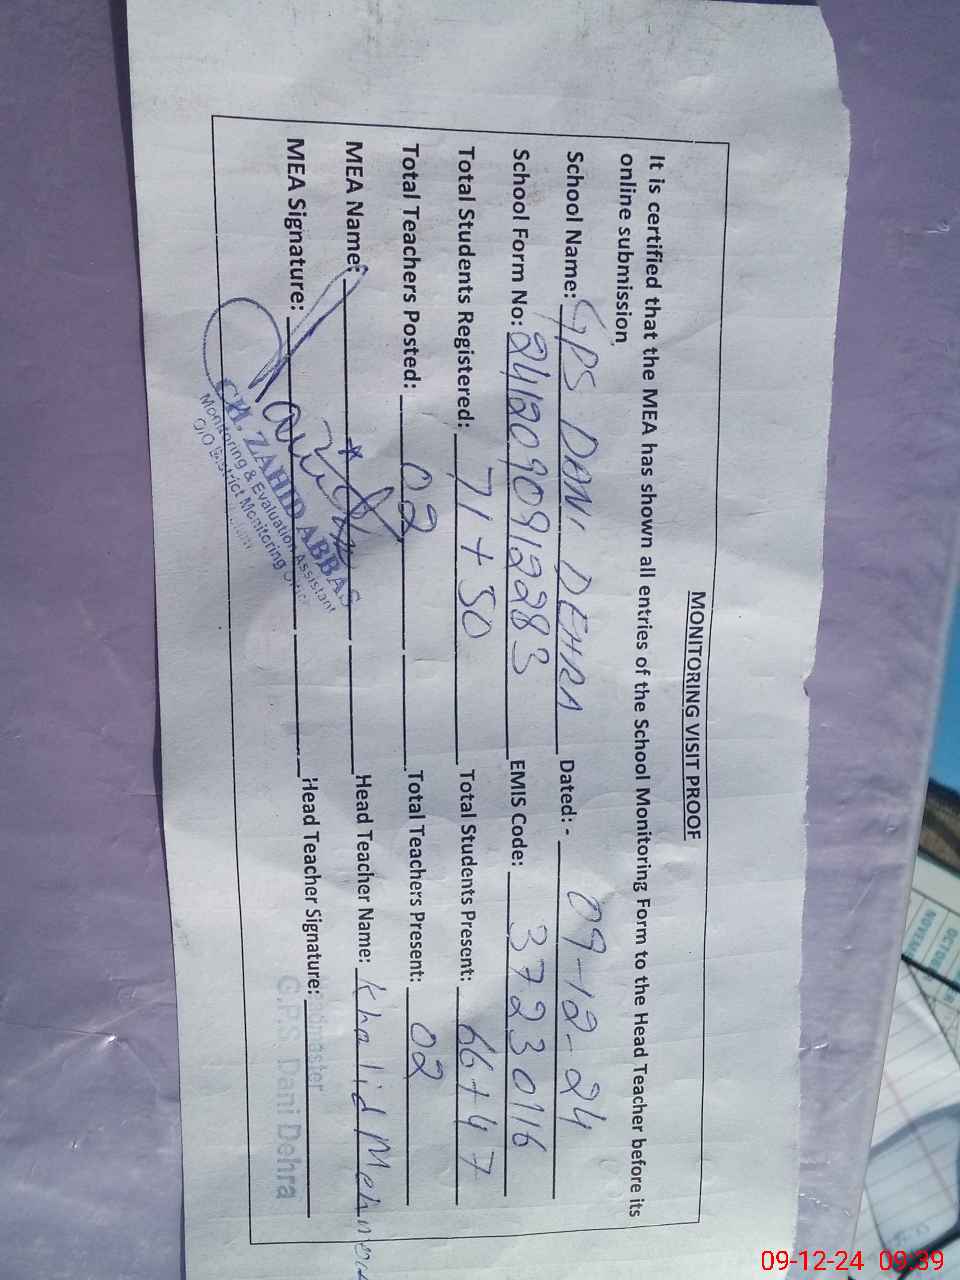 MONITORING VISIT PROOF
It is certified that the MEA has shown all entries of the School Monitoring Form to the Head Teacher before its
online submission
School Name: GPS DANI DEHRA Dated: - 09-12-24
School Form No: 2412090912283 EMIS Code: 37230116
Total Students Registered: 71+50 Total Students Present: 66+47
Total Teachers Posted: 02 Total Teachers Present: 02
MEA Name: Head Teacher Name: Khalid Mehmood
MEA Signature: Head Teacher Signature:
CH. ZAHID ABBAS
Monitoring & Evaluation Assistant
O/O District Monitoring Office
Headmaster
G.P.S. Dani Dehra
OCTOBER
NOVEMBER
09-12-24 09:39